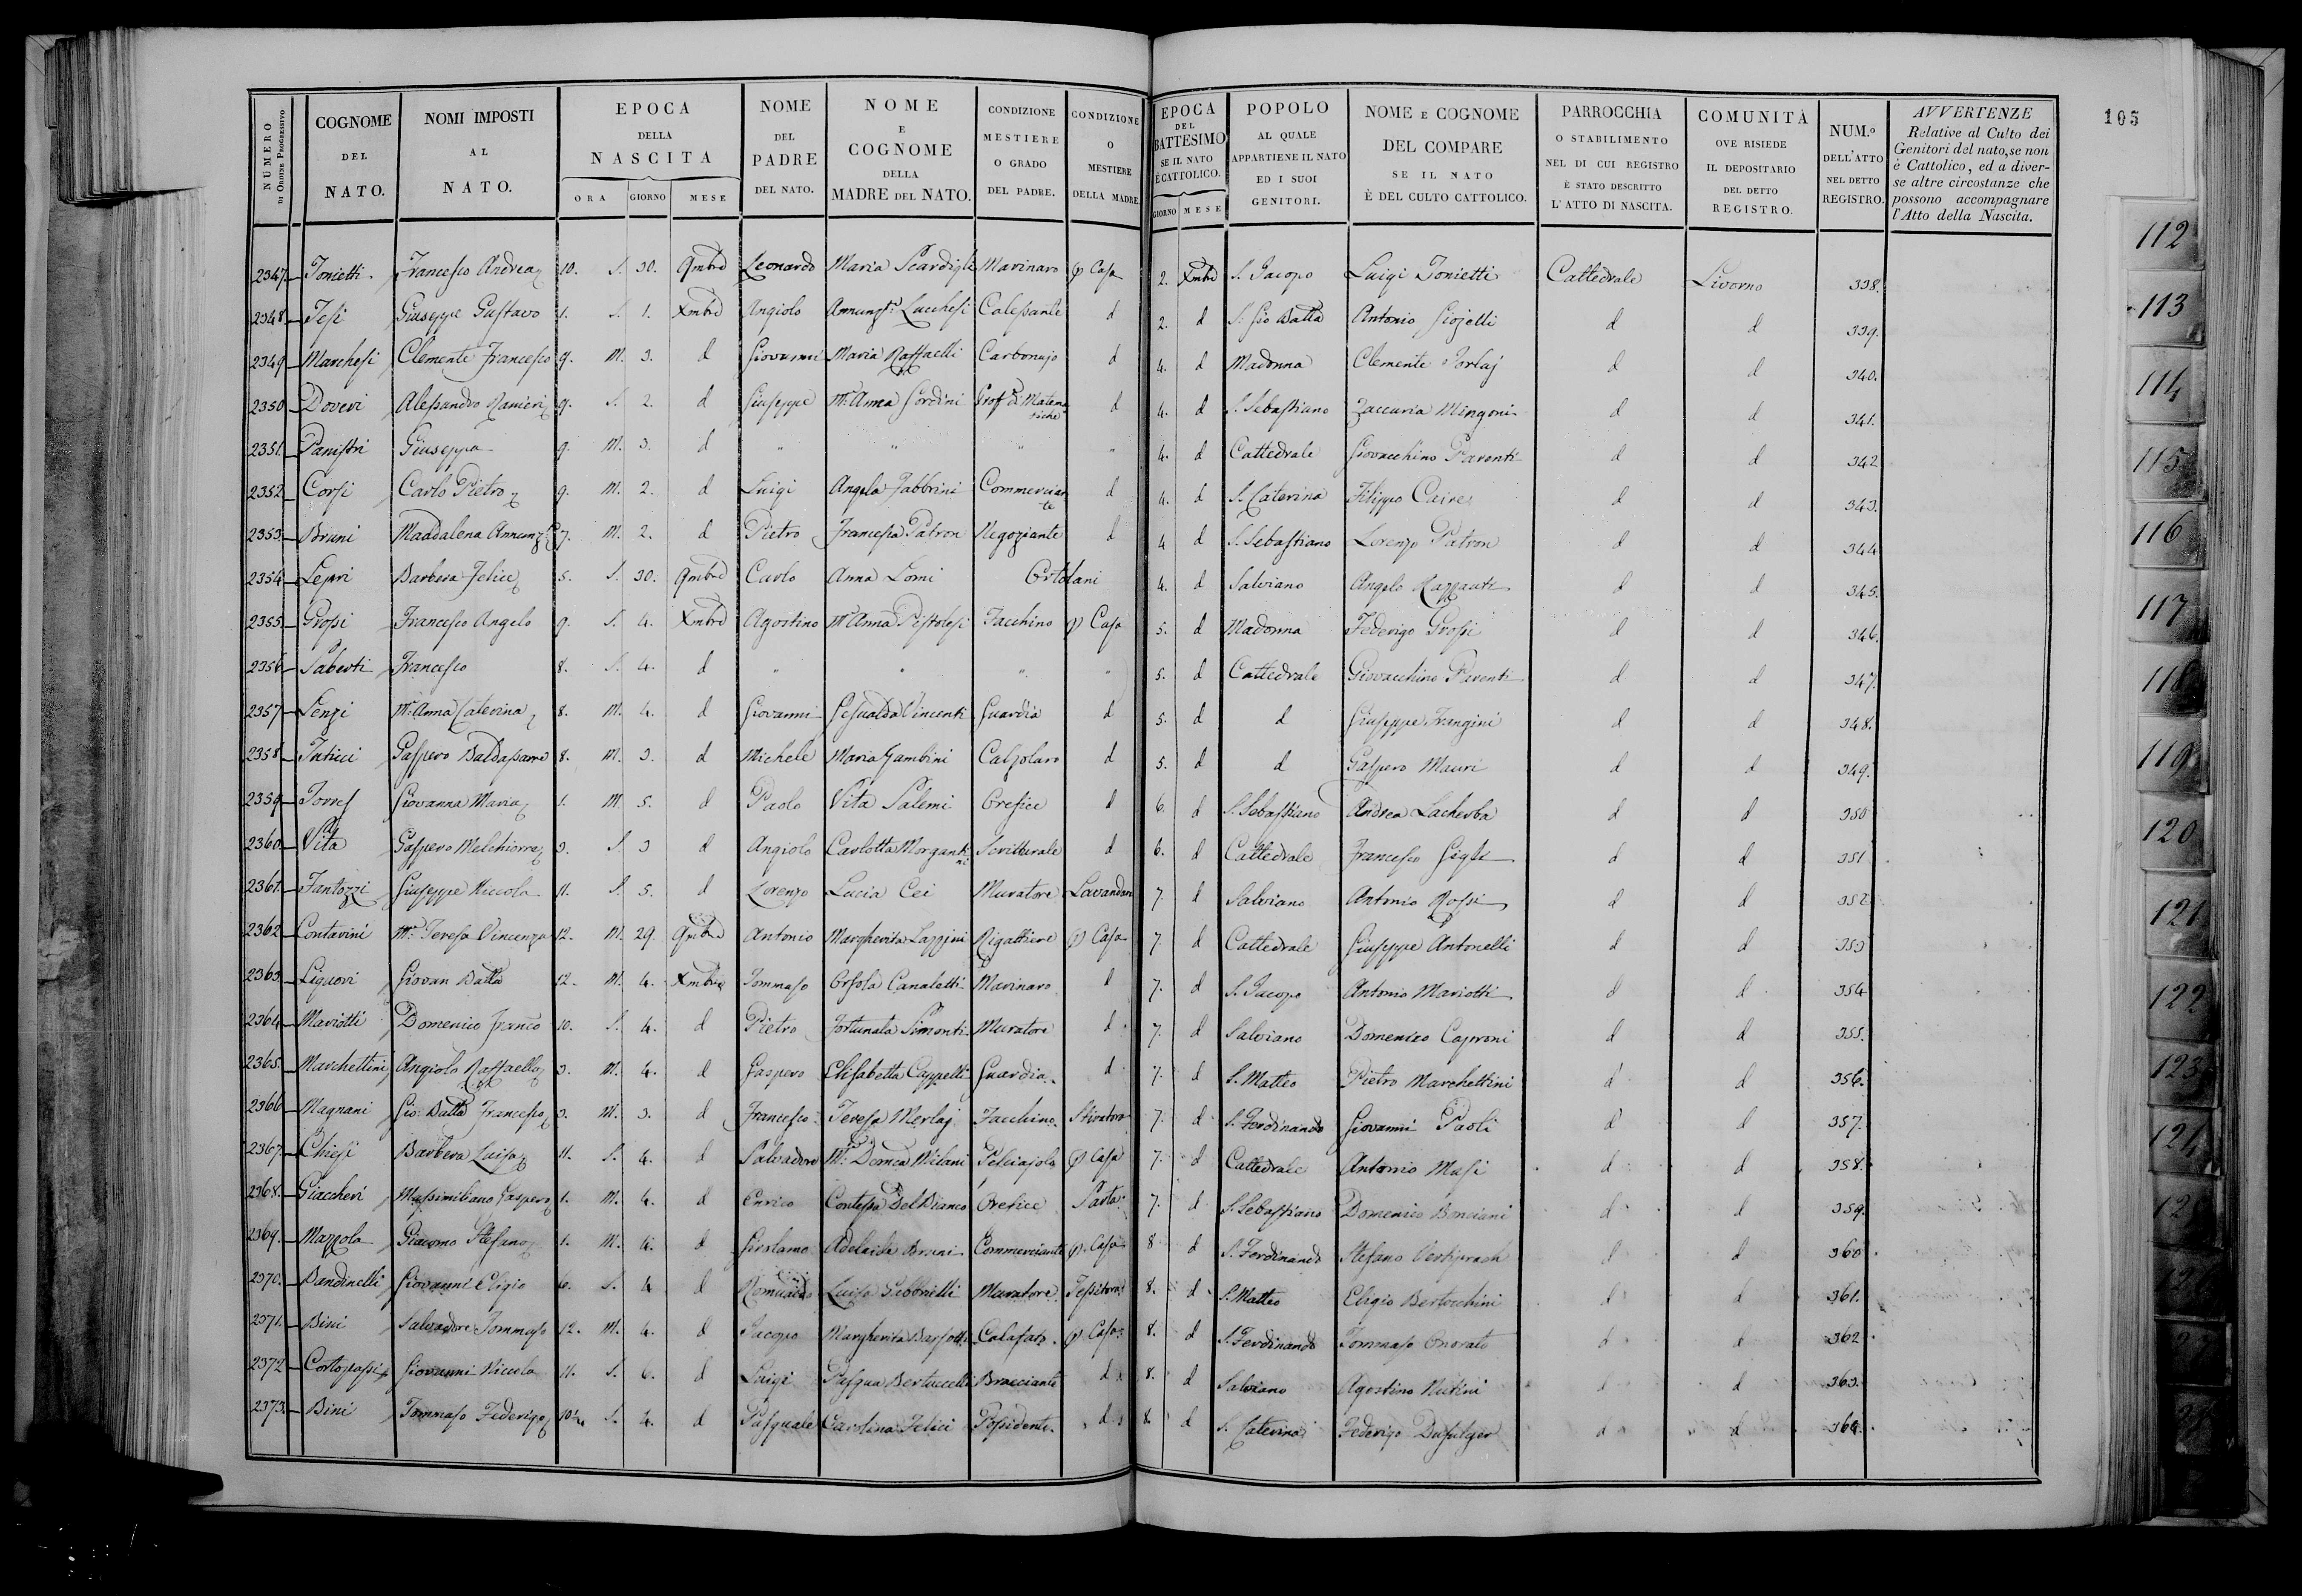 105
NUMERO DI ORDINE PROGRESSIVO | COGNOME DEL NATO. | NOMI IMPOSTI AL NATO. | EPOCA DELLA NASCITA ORA GIORNO MESE | NOME DEL PADRE DEL NATO. | NOME E COGNOME DELLA MADRE DEL NATO. | CONDIZIONE MESTIERE O GRADO DEL PADRE. | CONDIZIONE O MESTIERE DELLA MADRE. | EPOCA DEL BATTESIMO SE IL NATO È CATTOLICO. GIORNO MESE | POPOLO AL QUALE APPARTIENE IL NATO ED I SUOI GENITORI. | NOME E COGNOME DEL COMPARE SE IL NATO È DEL CULTO CATTOLICO. | PARROCCHIA O STABILIMENTO NEL DI CUI REGISTRO È STATO DESCRITTO L'ATTO DI NASCITA. | COMUNITÀ OVE RISIEDE IL DEPOSITARIO DEL DETTO REGISTRO. | NUM.º DELL'ATTO NEL DETTO REGISTRO. | AVVERTENZE Relative al Culto dei Genitori del nato, se non è Cattolico, ed a diverse altre circostanze che possono accompagnare l'Atto della Nascita.
2347 Tonietti Francesco Andrea 10. S. 30. 9mbre Leonardo Maria Scardigli Marinaro p Casa 2. Xmbre S. Jacopo Luigi Tonietti Cattedrale Livorno 338.
2348 Tesi Giuseppe Gustavo 1. S. 1. Xmbre Angiolo Annunz.a Lucchesi Calessante d 2. d S. Gio Batta Antonio Giojelli d d 339.
2349 Marchesi Clemente Francesco 9. M. 3. d Giovanni Maria Raffaelli Carbonajo d 4. d Madonna Clemente d d 340.
2350 Doveri Alessandro Ranieri 9. S. 2. d Giuseppe M.a Anna Sordini Prof. di Matematiche d 4. d S. Sebastiano Zaccaria Mingoni d d 341.
2351. Panistri Giuseppa 9. M. 3. d " " " " 4. d Cattedrale Giovacchino Parenti d d 342
2352 Corsi Carlo Pietro 9. M. 2. d Luigi Angela Fabbrini Commerciante d 4. d S. Caterina Filippo Caire d d 343.
2353 Bruni Maddalena Annunz.a 7. M. 2. d Pietro Francesca Patron Negoziante d 4 d S. Sebastiano Lorenzo Patron d d 344
2354 Lepri Barbera Felice 5. S. 30. 9mbre Carlo Anna Lomi Ortolani 4. d Salviano Angelo d d 345.
2355 Grossi Francesco Angelo 9. S. 4. Xmbre Agostino M.a Anna Pistolesi Facchino p Casa 5. d Madonna Federigo Grossi d d 346.
2356 Saberti Francesco 8. S. 4. d " " " " 5. d Cattedrale Giovacchino Parenti d d 347.
2357 Lenzi M.a Anna Caterina 8. M. 4. d Giovanni Gesualda Vincenti Guardia d 5. d d Giuseppe Frangini d d 348.
2358 Gaspero Baldassarre 8. M. 3. d Michele Maria Gambini Calzolaro d 5. d d Gaspero Mauri d d 349.
2359 Torres Giovanna Maria 1. M. 5. d Paolo Vita Salemi Orefice d 6. d S. Sebastiano Andrea Lacherba d d 350
2360 Vita Gaspero Melchiorre 3. S. 3 d Angiolo Carlotta Morgantini Scritturale d 6. d Cattedrale Francesco Gigli d d 351
2361. Fantozzi Giuseppe Niccola 11. S. 5. d Lorenzo Lucia Cei Muratore Lavandara 7. d Salviano Antonio Rossi d d 352
2362 Contarini M.a Teresa Vincenza 12. M. 29. 9mbre Antonio Margherita Lazzini Rigattiere p Casa 7. d Cattedrale Giuseppe Antonelli d d 353
2363 Liquori Giovan Batta 12. M. 4. Xmbre Tommaso Orsola Canaletti Marinaro d 7. d S. Jacopo Antonio Mariotti d d 354
2364 Mariotti Domenico Franco 10. S. 4. d Pietro Fortunata Simonti Muratore d 7. d Salviano Domenico Caproni d d 355.
2365. Marchettini Angiolo Raffaello 3. M. 4. d Gaspero Elisabetta Cappelli Guardia d 7. d S. Matteo Pietro Marchettini d d 356.
2366 Magnani Gio: Batta Francesco 3. M. 3. d Francesco Teresa Merlaj Facchino Stiratora 7. d S. Ferdinando Giovanni Paoli d d 357.
2367. Chiesi Barbera Luisa 11. S. 4. d Salvadore M.a Domca Milani p Casa 7. d Cattedrale Antonio Masi d d 358.
2368. Giaccheri Massimiliano Gaspero 1. M. 4. d Enrico Contessa Del Bianco Orefice Sarta 7. d S. Sebastiano Domenico Bonciani d d 359.
2369. Mazzola Giacomo Stefano 1. M. 4. d Girolamo Adelaide Bruni Commerciante p. Casa 8 d S. Ferdinando Stefano d d 360
2370. Bandinelli Giovanni Eligio 6. S. 4 d Romualdo Luisa Muratore Tessitora 8. d S. Matteo Eligio Bertocchini d d 361.
2371. Bini Salvadore Tommaso 12. M. 4. d Jacopo Margherita Barsotti Calafato p Casa 8. d S. Ferdinando Tommaso Onorato d d 362
2372 Cortopassi Giovanni Niccola 11. S. 6. d Luigi Pasqua Bertuccelli Bracciante d 8. d Salviano Agostino Nutini d d 363.
2373. Bini Tommaso Federigo 10½ S. 4. d Pasquale Carolina Felici Possidente d 8. d S. Caterina Federigo d d 364.
112
113
114
115
116
117
118
119
120
121
122
123
124
125
126